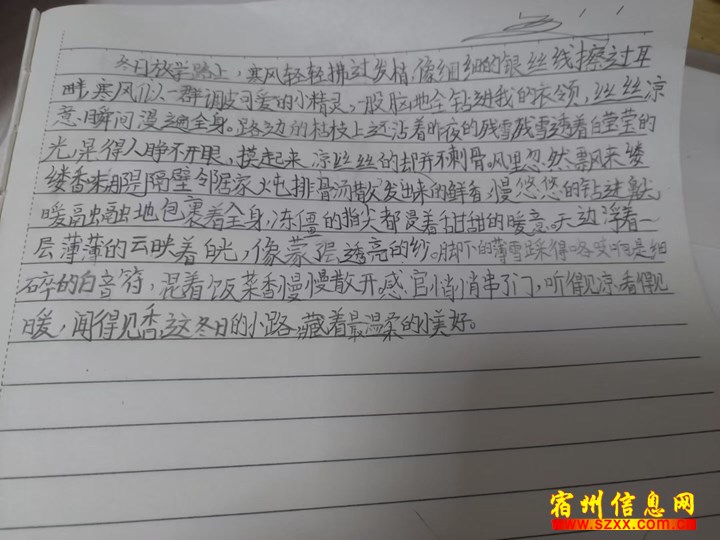 冬日放学路上，寒风轻轻拂过发梢，像细细的银丝线擦过耳
畔，寒风似一群调皮可爱的小精灵，一股脑地全钻进我的衣领，丝丝凉
意瞬间漫遍全身。路边的枯枝上还沾着昨夜的残雪，残雪透着白莹莹的
光，晃得人睁不开眼，摸起来凉丝丝的却并不刺骨。风里忽然飘来缕
缕香来，那是隔壁邻居家火屯排骨汤散发出来的鲜香，慢悠悠的钻进鼻
暖融融地包裹着全身，冻僵的指尖都浸着甜甜的暖意。天边浮着一
层薄薄的云映着白光，像蒙层透亮的纱。脚下的薄雪踩得咯吱响是细
碎的白音符，混着饭菜香慢慢散开。感官悄悄串了门，听得见凉，看得见
暖，闻得见香，这冬日的小路，藏着最温柔的小美好。
宿州信息网
www.szxx.com.cn